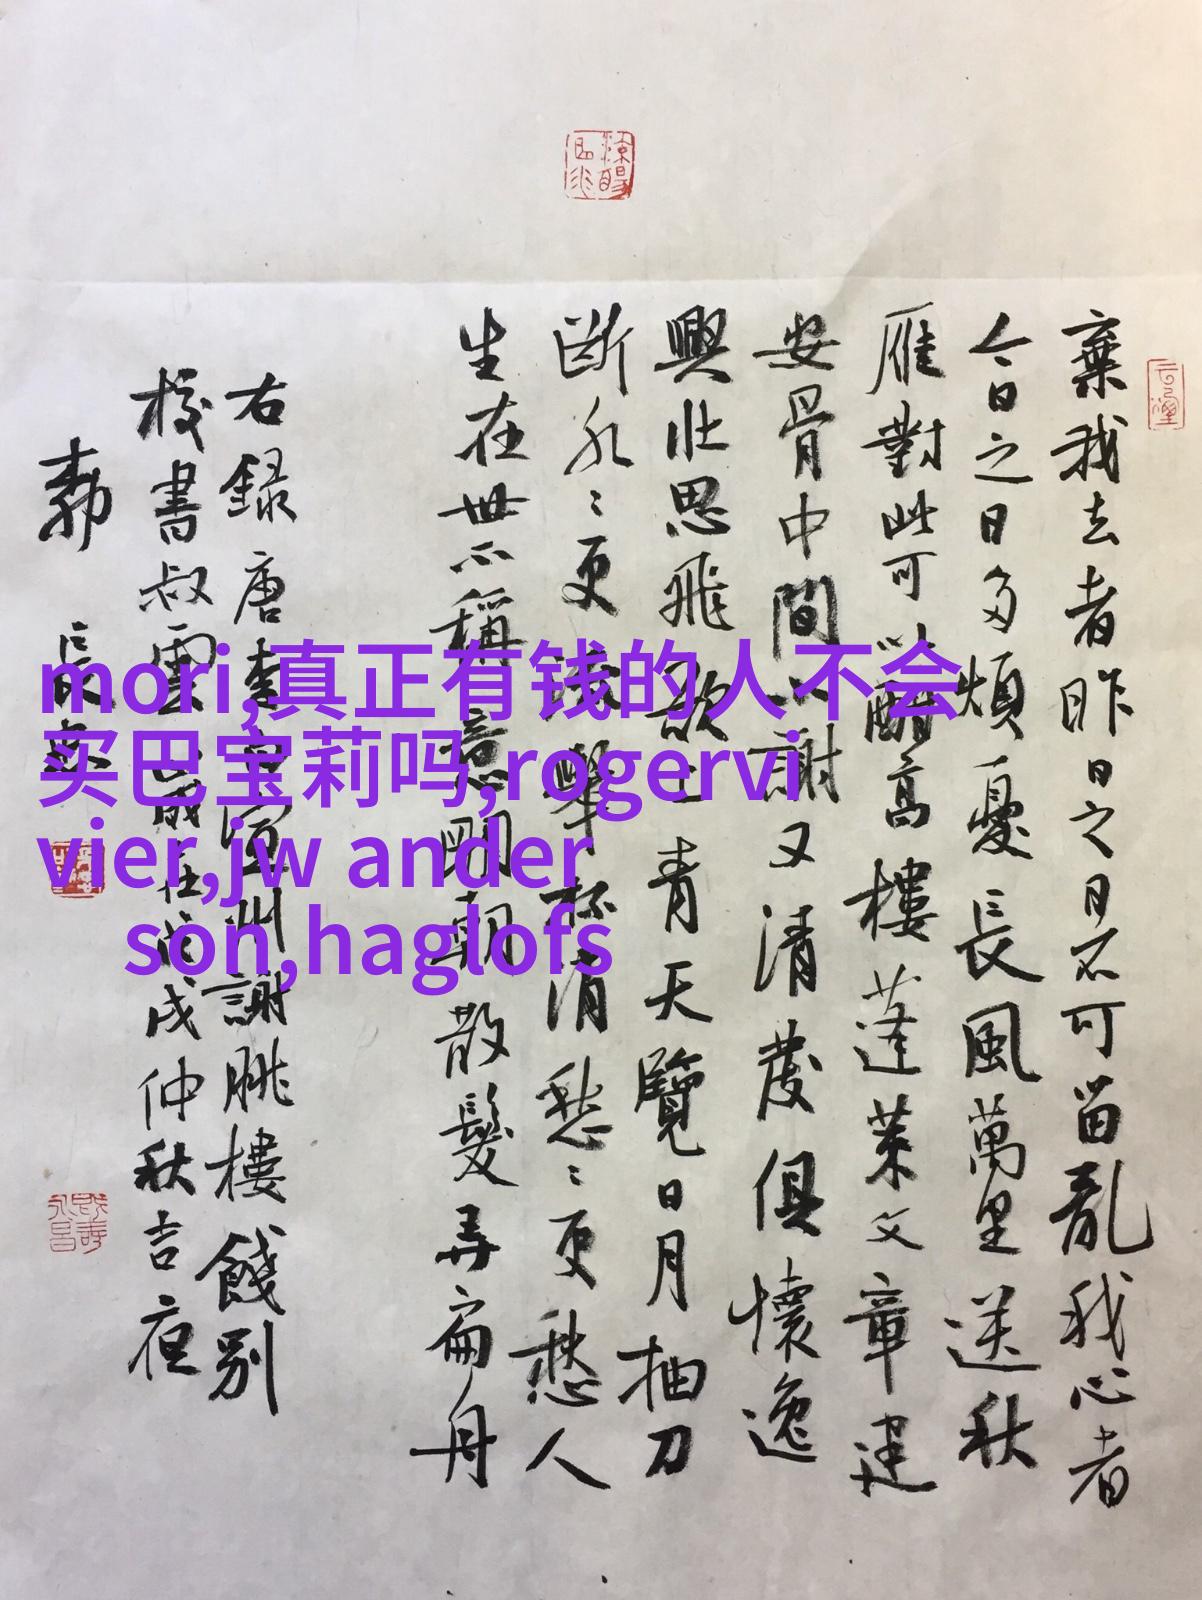 棄我去者昨日之日不可留亂我心者
今日之日多煩憂長風萬里送秋
雁對此可以酣高樓蓬萊文章建
安骨中間小謝又清發俱懷逸
興壯思飛欲上青天覽日月抽刀
断水〻更流舉杯消愁〻更愁人
生在世不稱意明朝散髮弄扁舟
右録唐李白宣州謝朓樓餞別
校書叔雲歲在戊戌仲秋吉夜
長
mori,真正有钱的人不会
买巴宝莉吗,rogervi
vier,jw ander
son,haglofs